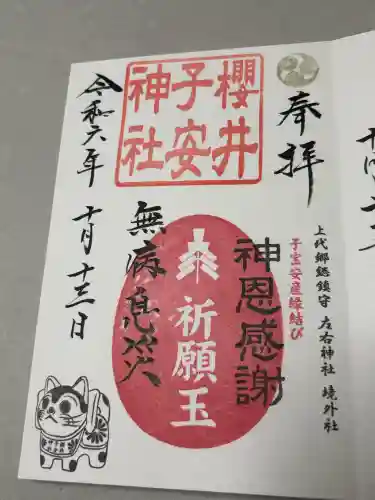 奉拝
上代郷総鎮守 左右神社 境外社
子宝安産縁結び
櫻井
子安
神社
神恩感謝
祈願玉
無病息災
令和六年
十月十三日